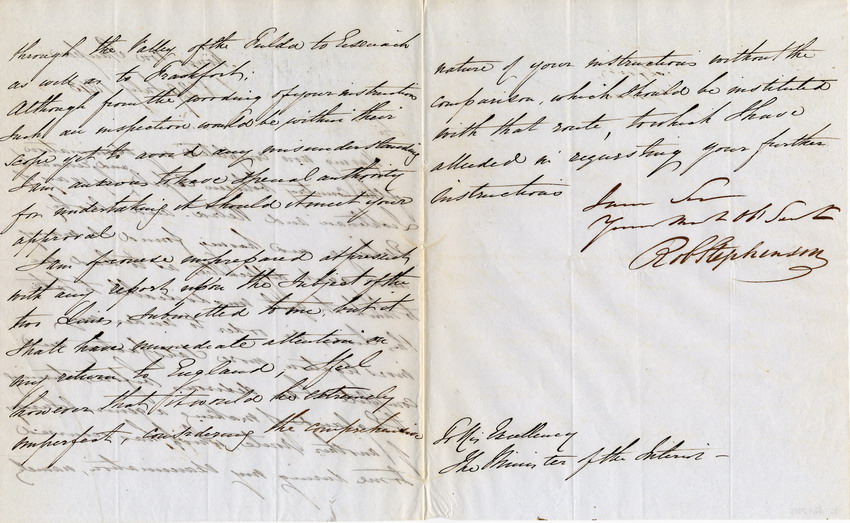 through the Valley of the Fulda to Eisenach
as well as to Frankfort,
Although from the wording of your instruction
such an inspection would be within their
scope yet to avoid any misunderstanding
I am anxious to have special authority
for undertaking it should it meet your
approval
I am of course unprepared at present
with any report upon the subject of the
two Lines, submitted to me, but it
shall have immediate attention on
my return to England, I feel
however that it would be extremely
imperfect, considering the comprehensive
nature of your instructions without the
comparison, which should be instituted
with that route, to which I have
alluded in requesting your further
instructions
I am Sir
Your Most Obt Servt
Rob Stephenson
To His Excellency
The Minister of the Interior –